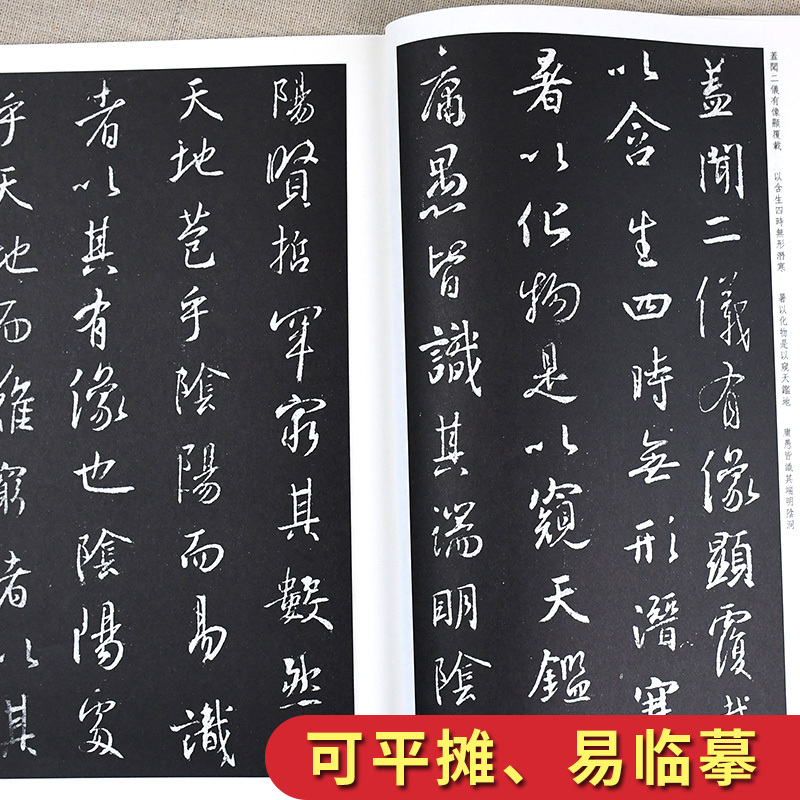 蓋聞二儀有像顯覆載
以含生四時無形潛寒
暑以化物是以窺天鑑
庸愚皆識其端明陰
陽賢哲罕窮其數然
天地苞乎陰陽而易識
者以其有像也陰陽處
乎天地而難窮者以其
蓋聞二儀有像顯覆載 以含生四時無形潛寒 暑以化物是以窺天鑑地 庸愚皆識其端明陰洞
可平摊、易临摹